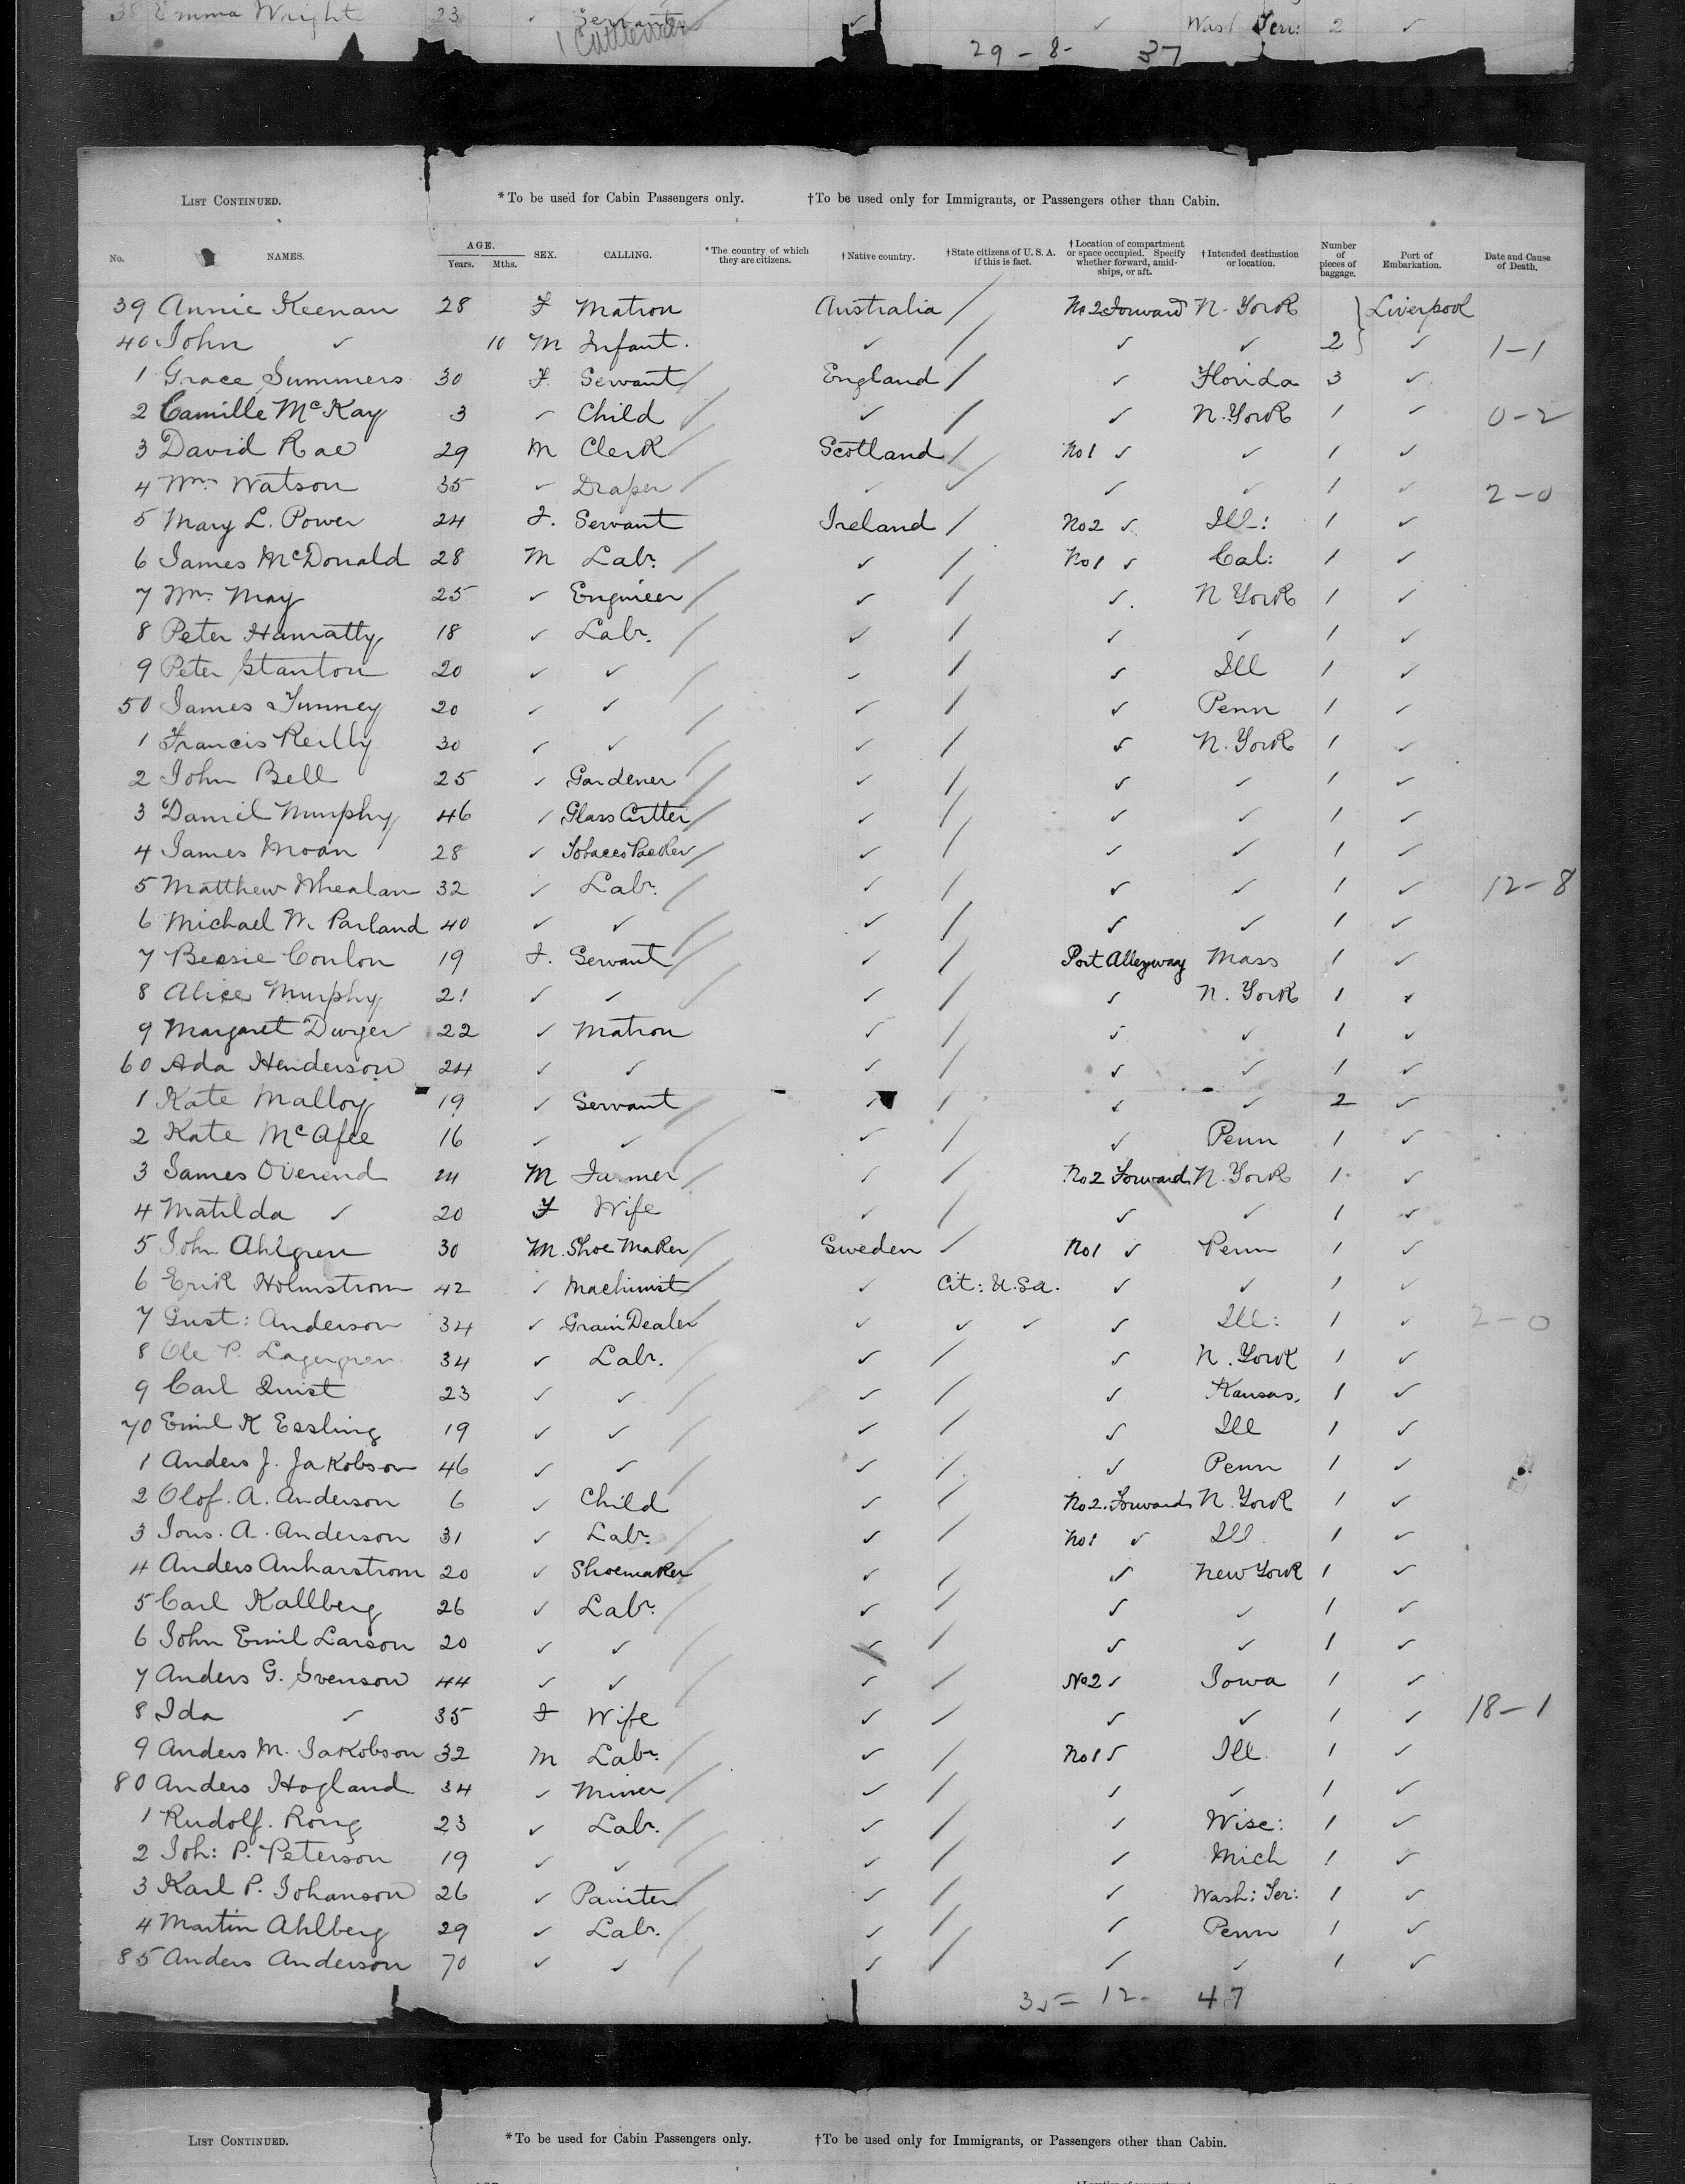 38 Emma Wright 23 ✓ Servant ✓ ✓ Wash Ter: 2 ✓
1 Cattleman
29 - 8 - 37
LIST CONTINUED. *To be used for Cabin Passengers only. †To be used only for Immigrants, or Passengers other than Cabin.
No. NAMES. AGE. Years. Mths. SEX. CALLING. *The country of which they are citizens. †Native country. †State citizens of U. S. A. if this is fact. †Location of compartment or space occupied. Specify whether forward, amidships, or aft. †Intended destination or location. Number of pieces of baggage. Port of Embarkation. Date and Cause of Death.
39 Annie Keenan 28 F Matron Australia / No 2 Forward N. York } Liverpool
40 John ✓ 10 M Infant. ✓ / ✓ ✓ 2 ✓ 1-1
1 Grace Summers 30 F. Servant / England / ✓ Florida 3 ✓
2 Camille McKay 3 ✓ Child / ✓ / ✓ N. York 1 ✓ 0-2
3 David Rae 29 M Clerk / Scotland / No 1 ✓ ✓ 1 ✓
4 Wm. Watson 35 ✓ Draper / ✓ ✓ ✓ ✓ 1 ✓ 2-0
5 Mary L. Power 24 F. Servant Ireland / No 2 ✓ Ill: 1 ✓
6 James McDonald 28 M Labr. / ✓ / No 1 ✓ Cal: 1 ✓
7 Wm. May 25 ✓ Engineer / ✓ / ✓ N York 1 ✓
8 Peter Hanratty 18 ✓ Labr. / ✓ / ✓ ✓ 1 ✓
9 Peter Stanton 20 ✓ ✓ / ✓ / ✓ Ill 1 ✓
50 James Tunney 20 ✓ ✓ / ✓ / ✓ Penn 1 ✓
1 Francis Reilly 30 ✓ ✓ / ✓ / ✓ N. York 1 ✓
2 John Bell 25 ✓ Gardener / ✓ / ✓ ✓ 1 ✓
3 Daniel Murphy 46 ✓ Glass Cutter / ✓ / ✓ ✓ 1 ✓
4 James Moan 28 ✓ Tobacco Packer / ✓ / ✓ ✓ 1 ✓
5 Matthew Whealan 32 ✓ Labr. / ✓ / ✓ ✓ 1 ✓ 12-8
6 Michael W. Parland 40 ✓ ✓ / ✓ / ✓ ✓ 1 ✓
7 Bessie Conlon 19 F. Servant / ✓ / Port Alleyway Mass 1 ✓
8 Alice Murphy 21 ✓ ✓ / ✓ / ✓ N. York 1 ✓
9 Margaret Dwyer 22 ✓ Matron ✓ / ✓ ✓ 1 ✓
60 Ada Henderson 24 ✓ ✓ ✓ / ✓ ✓ 1 ✓
1 Kate Malloy 19 ✓ Servant / ✓ / ✓ ✓ 2 ✓
2 Kate McAfee 16 ✓ ✓ / ✓ / ✓ Penn 1 ✓
3 James Overend M Farmer / ✓ / No 2 Forward N. York 1 ✓
4 Matilda ✓ 20 F Wife ✓ / ✓ ✓ 1 ✓
5 John Ahlgren 30 M. Shoe Maker / Sweden / No 1 ✓ Penn 1 ✓
6 Erik Holmstrom 42 ✓ Machinist / ✓ Cit: U.Sa. ✓ ✓ 1 ✓
7 Gust: Anderson 34 ✓ Grain Dealer / ✓ ✓ ✓ ✓ Ill: 1 ✓ 2-0
8 Ole P. Lagergren 34 ✓ Labr. ✓ / ✓ N. York 1 ✓
9 Carl Quist 23 ✓ ✓ / ✓ / ✓ Kansas. 1 ✓
70 Emil K Essling 19 ✓ ✓ / ✓ / ✓ Ill 1 ✓
1 Anders J. Jakobson 46 ✓ ✓ / ✓ / ✓ Penn 1 ✓
2 Olof. A. Anderson 6 ✓ Child / ✓ / No 2. Forward N. York 1 ✓
3 Jons. A. Anderson 31 ✓ Labr. / ✓ / No 1 ✓ Ill 1 ✓
4 Anders Anharstrom 20 ✓ Shoemaker / ✓ / ✓ New York 1 ✓
5 Carl Kallberg 26 ✓ Labr. / ✓ / ✓ ✓ 1 ✓
6 John Emil Larson 20 ✓ ✓ / ✓ / ✓ ✓ 1 ✓
7 Anders G. Svenson 44 ✓ ✓ / ✓ / No 2 ✓ Iowa 1 ✓
8 Ida ✓ 35 F Wife ✓ / ✓ ✓ 1 ✓ 18-1
9 Anders M. Jakobson 32 M Labr. / ✓ / No 1 ✓ Ill. 1 ✓
80 Anders Hogland 34 ✓ Miner / ✓ / ✓ ✓ 1 ✓
1 Rudolf. Rong 23 ✓ Labr. / ✓ / ✓ Wisc: 1 ✓
2 Joh: P. Peterson 19 ✓ ✓ / ✓ / ✓ Mich 1 ✓
3 Karl P. Johanson 26 ✓ Painter / ✓ / ✓ Wash: Ter: 1 ✓
4 Martin Ahlberg 29 ✓ Labr. / ✓ / ✓ Penn 1 ✓
85 Anders Anderson 70 ✓ ✓ / ✓ / ✓ ✓ 1 ✓
35 = 12 - 47
LIST CONTINUED. *To be used for Cabin Passengers only. †To be used only for Immigrants, or Passengers other than Cabin.